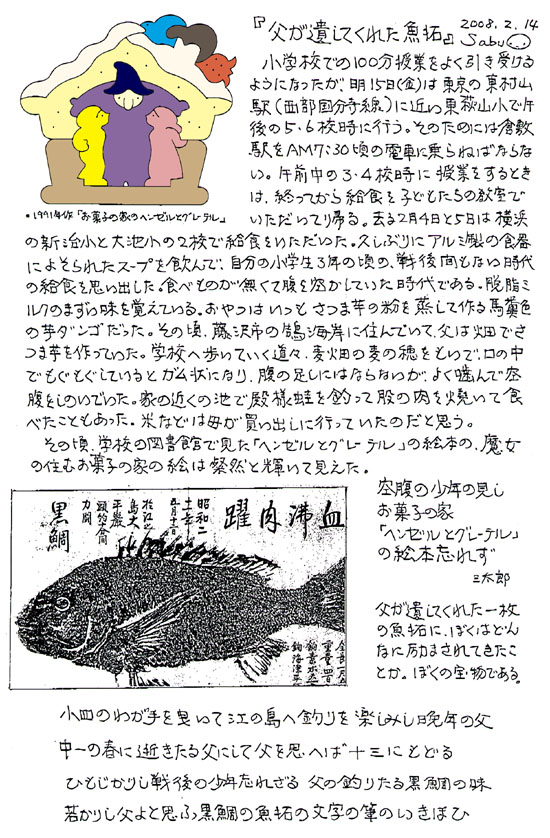 『父が遺してくれた魚拓』 2008.2.14
Sabu
小学校での100分授業をよく引き受ける
ようになったが、明15日(金)は東京の東村山
駅(西部国分寺線)に近い東萩山小で午
後の5・6校時に行う。そのためには倉敷
駅をAM7:30頃の電車に乗らねばならな
い。午前中の3・4校時に授業をするとき
は、終ってから給食を子どもたちの教室で
いただいてり帰る。去る2月4日と5日は横浜
・1991年作「お菓子の家のヘンゼルとグレーテル」
の新治小と大池小の2校で給食をいただいた。久しぶりにアルミ製の食器
によそられたスープを飲んで、自分の小学生3年の頃の、戦後間もない時代
の給食を思い出した。食べものが無くて腹を空かしていた時代である。脱脂ミ
ルクのまずい味を覚えている。おやつはいつもさつま芋の粉を蒸して作る馬糞色
の芋ダンゴだった。その頃、藤沢市の鵠海岸に住んでいて、父は畑でさ
つま芋を作っていた。学校へ歩いていく道々、麦畑の麦の穂をもいで、口の中
でもぐもぐしているとガム状になり、腹の足しにはならないが、よく噛んで空
腹をしのいでいた。家の近くの池で殿様蛙を釣って股の肉を焼いて食
べたこともあった。米などは母が買い出しに行っていたのだと思う。
その頃、学校の図書館で見た「ヘンゼルとグレーテル」の絵本の、魔女
の住むお菓子の家の絵は燦然と輝いて見えた。
空腹の少年の見し
お菓子の家
「ヘンゼルとグレーテル」
の絵本忘れず
三太郎
血沸肉躍
昭和二
十二年
五月十二日
黒鯛
父が遺してくれた一枚
の魚拓に、ぼくはどん
なに励まされてきたこ
とか。ぼくの宝物である。
小四のわが手を曳いて江の島へ釣りを楽しみし晩年の父
中一の春に逝きたる父にして父を思へば十三にとどる
ひもじかりし戦後の少年忘れざる 父の釣りたる黒鯛の味
若かりし父よと思ふ黒鯛の魚拓の文字の筆のいきほひ